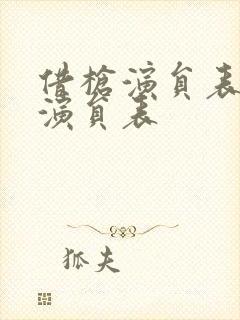 借槍演員表
演員表
狐夫